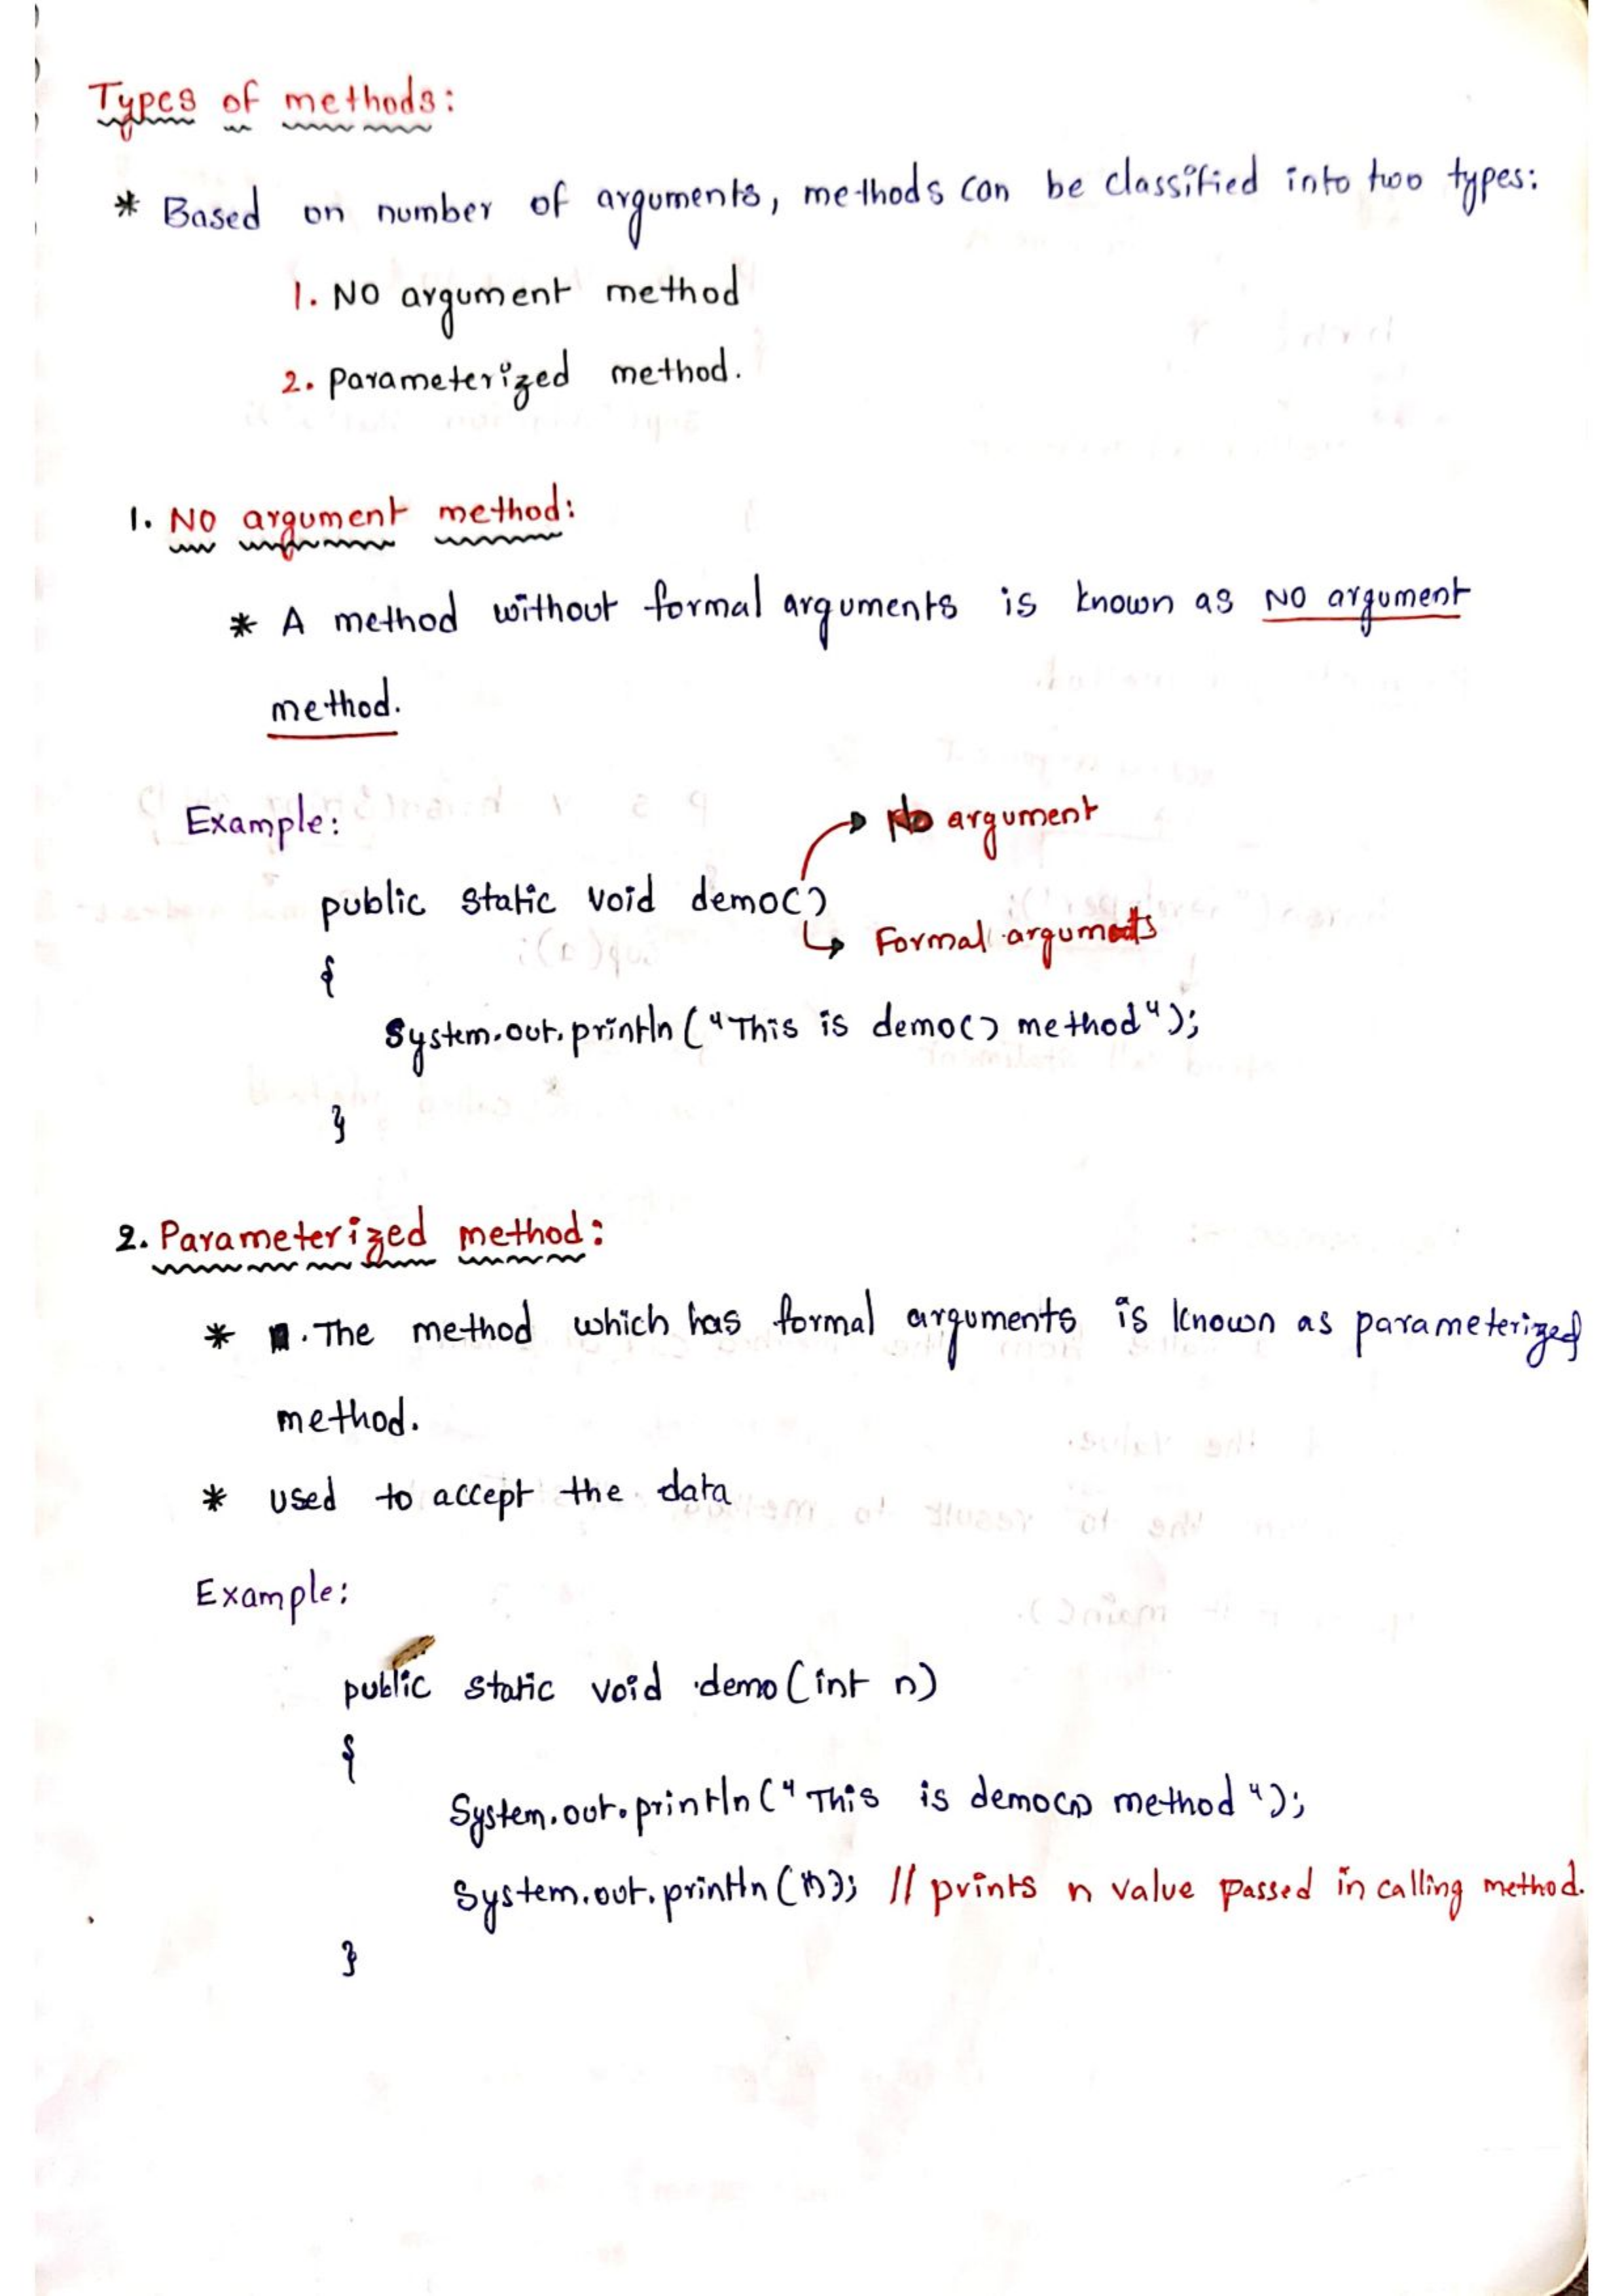 Types of methods:
* Based on number of arguments, methods can be classified into two types:
1. NO argument method
2. parameterized method.
1. NO argument method:
* A method without formal arguments is known as NO argument
method.
Example:
No argument
public static void demo()
Formal arguments
{
System.out.println("This is demo() method");
}
2. Parameterized method:
* The method which has formal arguments is known as parameterized
method.
* used to accept the data
Example:
public static void demo(int n)
{
System.out.println("This is demo() method");
System.out.println(n); // prints n value passed in calling method.
}